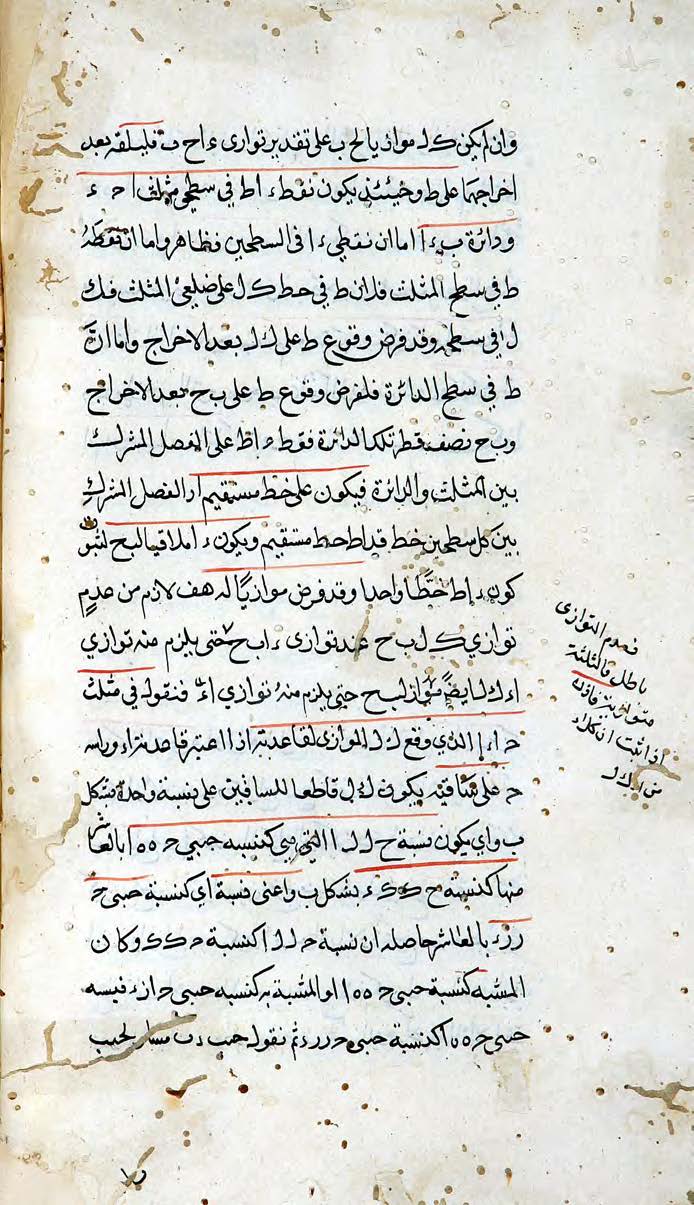 وان لم يكن ك ل موازيا لح ب على تقدير توازى ء ا ح ب فليلقه بعد
اخراجهما على ط وحينئذ يكون نقط ء ا ط في سطحي مثلث ا ح ء
ودائرة ب ء ا اما ان نقطي ء ا فى السطحين فظاهر واما ان نقطه
ط في سطح المثلث فلان ط في خط ك ل على ضلعي المثلث فك
ل في سطحه وقد فرض وقوع ط على ك ل بعد الاخراج واما ان
ط في سطح الدائرة فلفرض وقوع ط على ب ح بعد الاخراج
وب ح نصف قطر تلك الدائرة فنقط ء ا ط على الفصل المشترك
بين المثلث والدائرة فيكون على خط مستقيم اذ الفصل المشترك
بين كل سطحين خط فداط خط مستقيم ويكون ء ا ملاقيا لبح
كون ء ا ط خطا واحدا وقد فرض موازيا له هف لازم من عدم
توازي ك ل ب ح عند توازى ء ا ب ح حتى يلزم منه توازي
ا ء ك ل ايضا مواز لبح حتى يلزم منه توازي ا ء فنقول في مثلث
ح ء ا الذي وقع ك ل الموازى لقاعدته اذا اعتبر قاعدته ا ء وراسه
ح على ساقيه يكون ك ل قاطعا للساقين على نسبة واحدة بشكل
ب واي يكون نسبة ح ل ل ا التي هي كنسبه جيبي ح ه ه ا بالعاشر
منها كنسبة ح ك ك ء بشكل ب واعنى نسبة اي كنسبة جيبى ح
ز ز ء بالعاشر حاصله ان نسبة ح ل ل ا كنسبة ح ك ك ء وكان
المشبه كنسبة جيبى ح ه ه ا والمشبة به كنسبه جيبى ح ز ز ء فنسبه
جيبى ح ه ه ا كنسبة جيبى ح ز ز ء ثم نقول جيب
فعدم التوازى
باطل فالثلثة
متوازية فاذن
اذا ثبت ان كلا
من ا ك ل